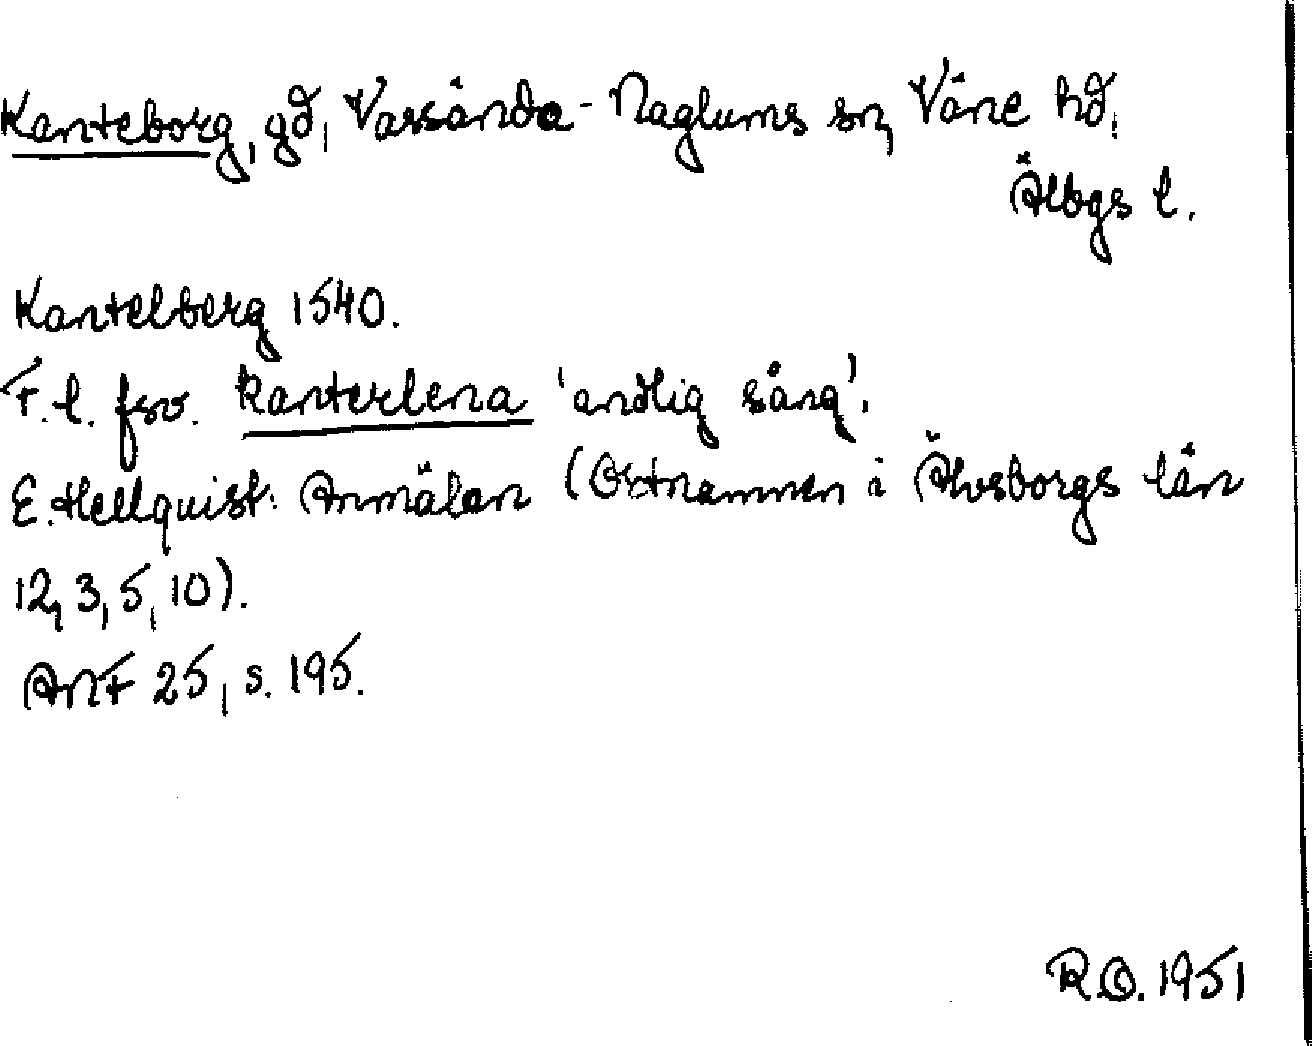 Kanteborg, gd, Vassända-Naglums sn, Väne hd,
Älbgs l.
Kantelberg 1540.
F. l. fsv. kanterlena 'andlig sång'.
E. Hellquist: Anmälan (Ortnamnen i Älvsborgs län
12, 3, 5, 10).
ANF 25, s. 195.
R.O. 1951